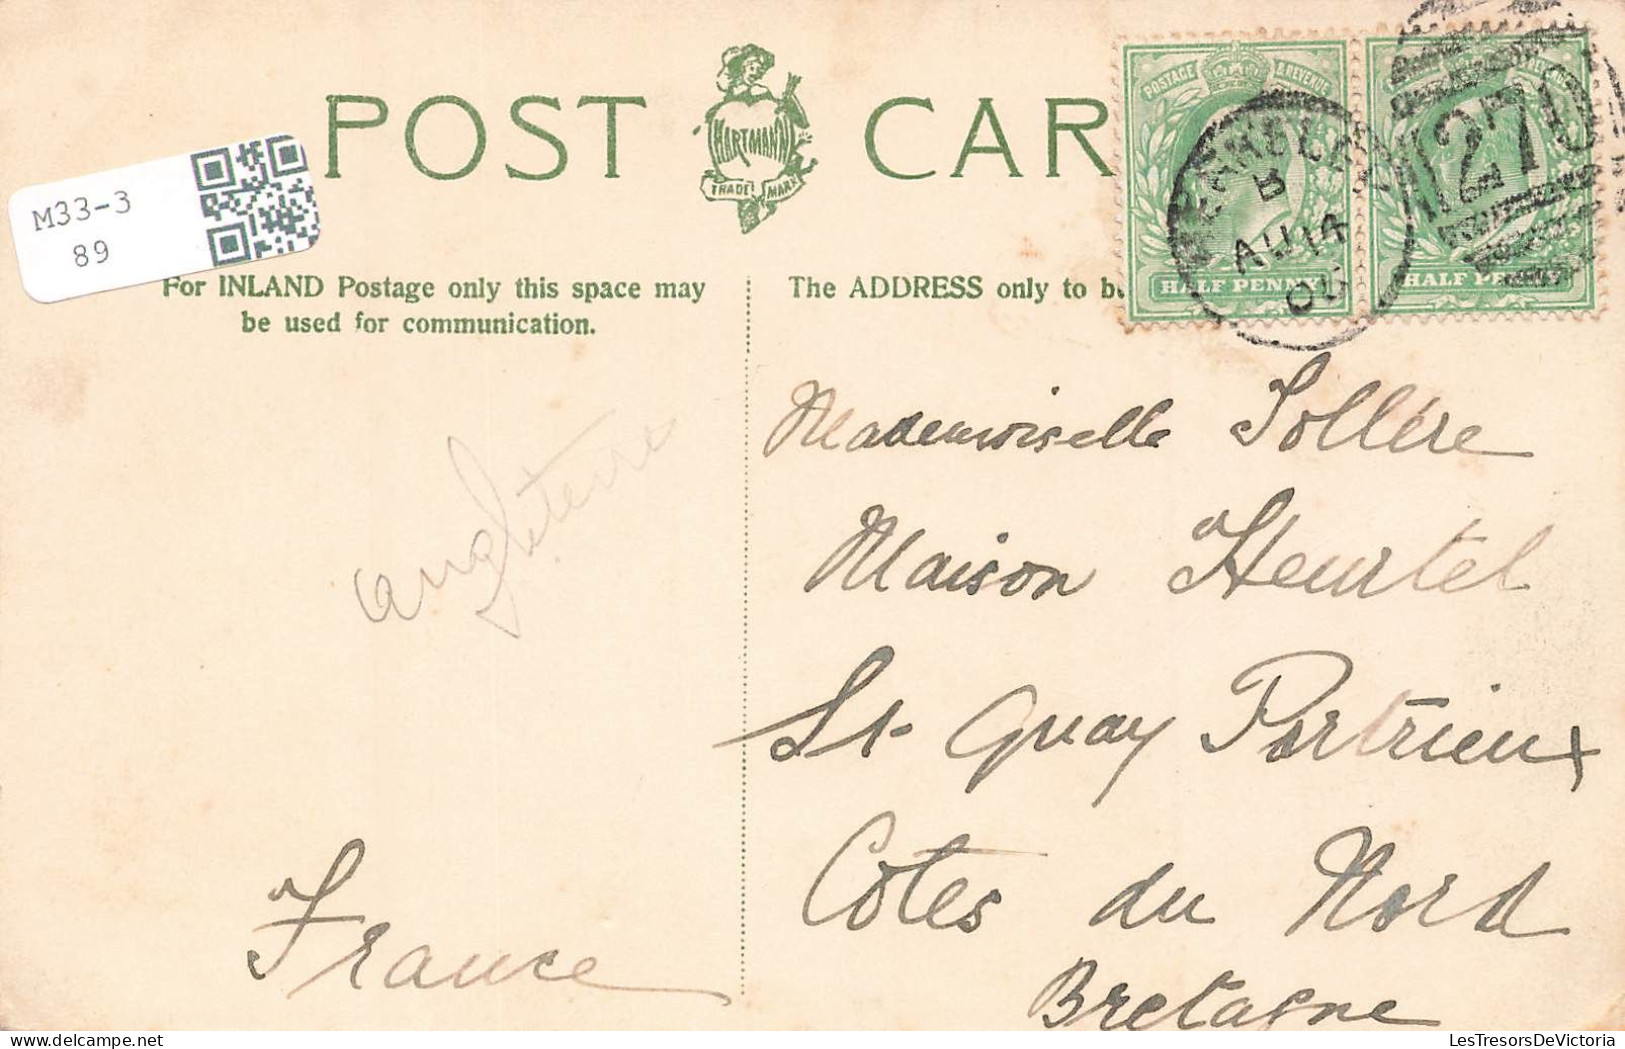 POST CAR
HARTMANN
TRADE MARK
M33-3
89
For INLAND Postage only this space may
be used for communication.
The ADDRESS only to be
POSTAGE & REVENUE
HALF PENNY
HALF PENNY
B
AU 14
angleterre
Mademoiselle Sollére
Maison Heurtel
St. Quay Portrieux
Cotes du Nord
France
Bretagne
LesTresorsDeVictoria